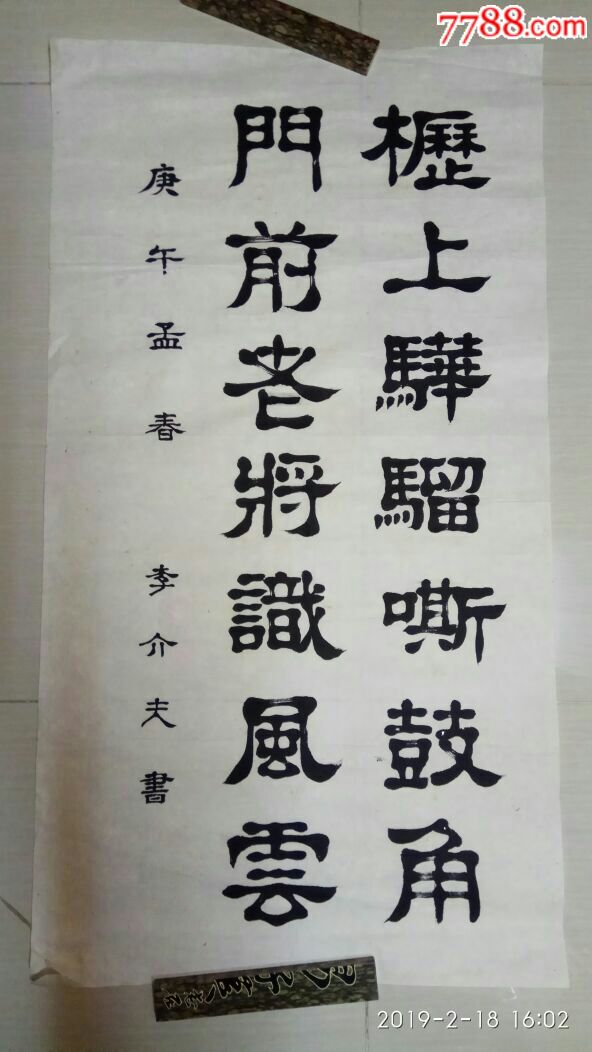 7788.com
櫪上驊騮嘶鼓角
門前老將識風雲
庚午孟春 李介夫書
2019-2-18 16:02